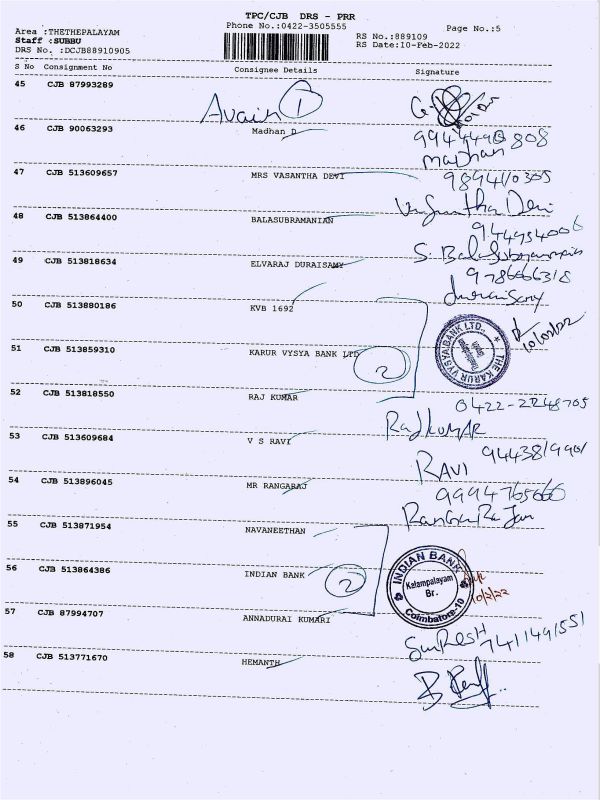 TPC/CJB DRS - PRR
Phone No.:0422-3505555
Page No.:5
Area :THETHEPALAYAM
Staff :SUBBU
DRS No. :DCJB88910905
RS No.:889109
RS Date:10-Feb-2022
S No Consignment No Consignee Details Signature
45 CJB 87993289
1
46 CJB 90063293 Madhan D
Madhan
47 CJB 513609657 MRS VASANTHA DEVI
9894110305
Vasantha Devi
48 CJB 513864400 BALASUBRAMANIAN
49 CJB 513818634 ELVARAJ DURAISAMY
9786666318
50 CJB 513880186 KVB 1692
THE KARUR VYSYA BANK LTD.,
10/02/22
51 CJB 513859310 KARUR VYSYA BANK LTD
2
52 CJB 513818550 RAJ KUMAR
0422-2248705
RAJKUMAR
53 CJB 513609684 V S RAVI
9443819901
RAVI
54 CJB 513896045 MR RANGARAJ
9994765666
55 CJB 513871954 NAVANEETHAN
56 CJB 513864386 INDIAN BANK
2
INDIAN BANK
Kalampalayam
Br.
Coimbatore-10
10/2/22
57 CJB 87994707 ANNADURAI KUMARI
SURESH 7411491551
58 CJB 513771670 HEMANTH